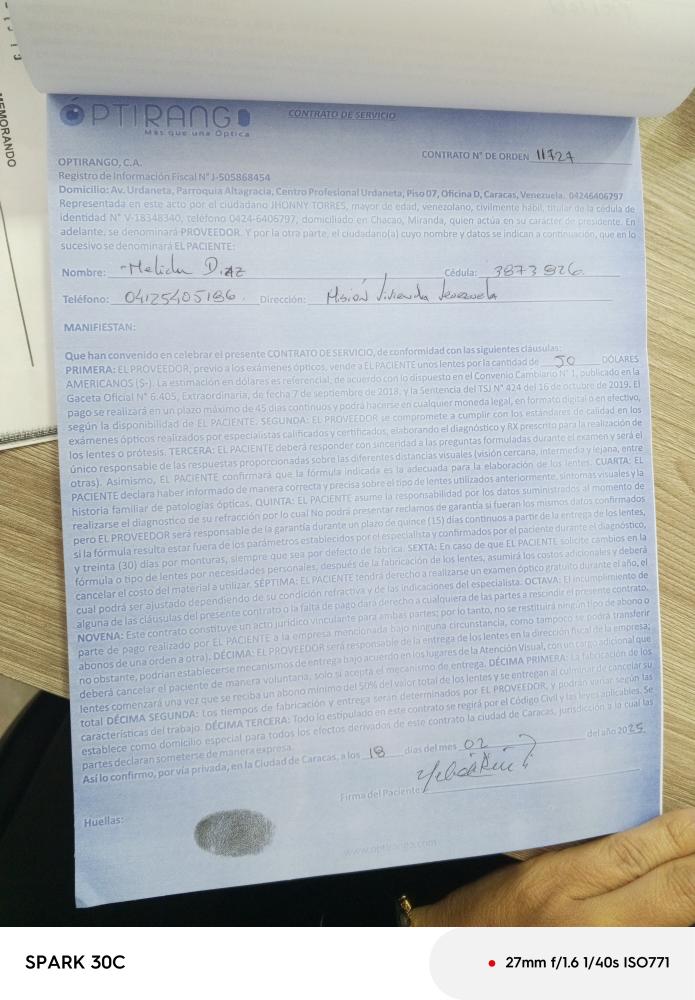 MEMORANDO
ÓPTIRANGO
Más que una Óptica
CONTRATO DE SERVICIO
CONTRATO N° DE ORDEN 11727
OPTIRANGO, C.A.
Registro de Información Fiscal N° J-505868454
Domicilio: Av. Urdaneta, Parroquia Altagracia, Centro Profesional Urdaneta, Piso 07, Oficina D, Caracas, Venezuela. 04246406797
Representada en este acto por el ciudadano JHONNY TORRES, mayor de edad, venezolano, civilmente hábil, titular de la cédula de
identidad N° V-18348340, teléfono 0424-6406797, domiciliado en Chacao, Miranda, quien actúa en su carácter de presidente. En
adelante, se denominará PROVEEDOR. Y por la otra parte, el ciudadano(a) cuyo nombre y datos se indican a continuación, que en lo
sucesivo se denominará EL PACIENTE:
Nombre: Melida Diaz Cédula: 3873826
Teléfono: 04125405186. Dirección: Misión Vivienda Venezuela
MANIFIESTAN:
Que han convenido en celebrar el presente CONTRATO DE SERVICIO, de conformidad con las siguientes cláusulas:
PRIMERA: EL PROVEEDOR, previo a los exámenes ópticos, vende a EL PACIENTE unos lentes por la cantidad de 50 DÓLARES
AMERICANOS ($-). La estimación en dólares es referencial, de acuerdo con lo dispuesto en el Convenio Cambiario N° 1, publicado en la
Gaceta Oficial N° 6.405, Extraordinaria, de fecha 7 de septiembre de 2018, y la Sentencia del TSJ N° 424 del 16 de octubre de 2019. El
pago se realizará en un plazo máximo de 45 días continuos y podrá hacerse en cualquier moneda legal, en formato digital o en efectivo,
según la disponibilidad de EL PACIENTE. SEGUNDA: EL PROVEEDOR se compromete a cumplir con los estándares de calidad en los
exámenes ópticos realizados por especialistas calificados y certificados, elaborando el diagnóstico y RX prescrito para la realización de
los lentes o prótesis. TERCERA: EL PACIENTE deberá responder con sinceridad a las preguntas formuladas durante el examen y será el
único responsable de las respuestas proporcionadas sobre las diferentes distancias visuales (visión cercana, intermedia y lejana, entre
otras). Asimismo, EL PACIENTE confirmará que la fórmula indicada es la adecuada para la elaboración de los lentes. CUARTA: EL
PACIENTE declara haber informado de manera correcta y precisa sobre el tipo de lentes utilizados anteriormente, síntomas visuales y la
historia familiar de patologías ópticas. QUINTA: EL PACIENTE asume la responsabilidad por los datos suministrados al momento de
realizarse el diagnostico de su refracción por lo cual No podrá presentar reclamos de garantía si fueran los mismos datos confirmados
pero EL PROVEEDOR será responsable de la garantía durante un plazo de quince (15) días continuos a partir de la entrega de los lentes,
si la fórmula resulta estar fuera de los parámetros establecidos por el especialista y confirmados por el paciente durante el diagnóstico,
y treinta (30) días por monturas, siempre que sea por defecto de fábrica. SEXTA: En caso de que EL PACIENTE solicite cambios en la
fórmula o tipo de lentes por necesidades personales, después de la fabricación de los lentes, asumirá los costos adicionales y deberá
cancelar el costo del material a utilizar. SÉPTIMA: EL PACIENTE tendrá derecho a realizarse un examen óptico gratuito durante el año, el
cual podrá ser ajustado dependiendo de su condición refractiva y de las indicaciones del especialista. OCTAVA: El incumplimiento de
alguna de las cláusulas del presente contrato o la falta de pago dará derecho a cualquiera de las partes a rescindir el presente contrato.
NOVENA: Este contrato constituye un acto jurídico vinculante para ambas partes; por lo tanto, no se restituirá ningún tipo de abono o
parte de pago realizado por EL PACIENTE a la empresa mencionada bajo ninguna circunstancia, como tampoco se podrá transferir
abonos de una orden a otra). DÉCIMA: EL PROVEEDOR será responsable de la entrega de los lentes en la dirección fiscal de la empresa;
no obstante, podrían establecerse mecanismos de entrega bajo acuerdo en los lugares de la Atención Visual, con un cargo adicional que
deberá cancelar el paciente de manera voluntaria, solo si acepta el mecanismo de entrega. DÉCIMA PRIMERA: La fabricación de los
lentes comenzará una vez que se reciba un abono mínimo del 50% del valor total de los lentes y se entregan al culminar de cancelar su
total DÉCIMA SEGUNDA: Los tiempos de fabricación y entrega serán determinados por EL PROVEEDOR, y podrán variar según las
características del trabajo. DÉCIMA TERCERA: Todo lo estipulado en este contrato se regirá por el Código Civil y las leyes aplicables. Se
establece como domicilio especial para todos los efectos derivados de este contrato la ciudad de Caracas, jurisdicción a la cual las
partes declaran someterse de manera expresa.
Así lo confirmo, por vía privada, en la Ciudad de Caracas, a los 18 días del mes 02 del año 2025
Firma del Paciente
Huellas:
www.optirango.com
SPARK 30C
27mm f/1.6 1/40s ISO771